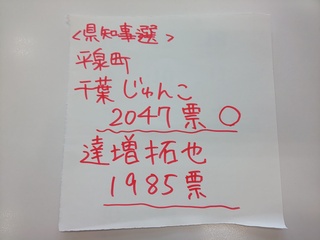 <県知事選>
平泉町
千葉じゅんこ
2047票 ○
達増拓也
1985票